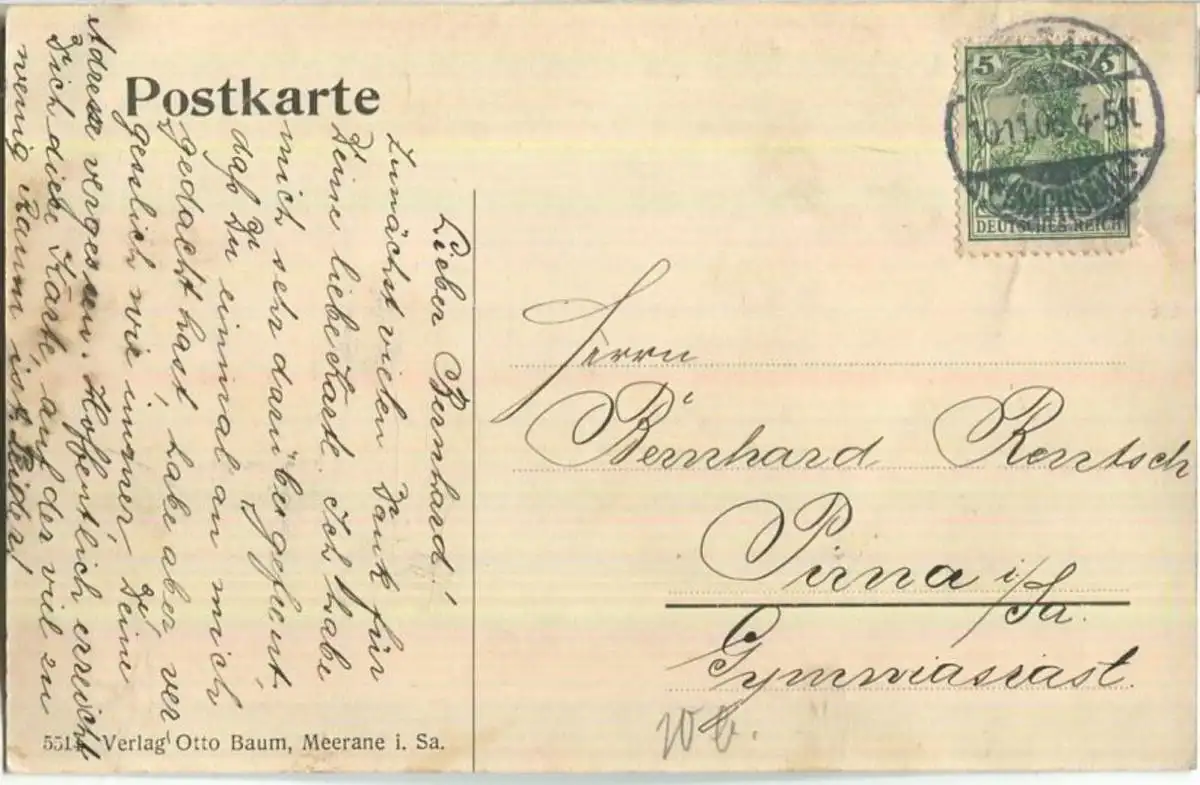 Postkarte
5
5
10.11.06. 4-5N.
(SACHSEN)
DEUTSCHES REICH
Lieber Bernhard!
Zunächst vielen Dank für
Deine liebe Karte. Ich habe
mich sehr darüber gefreut,
daß Du einmal an mich
gedacht hast, habe aber, ver
gesslich wie immer, Deine
Adresse vergessen. Hoffentlich erreicht
Dich diese Karte, auf der viel zu
wenig Raum ist. Leider!
Herrn
Bernhard Rentsch
Pirna i/Sa.
Gymnasiast.
5514 Verlag Otto Baum, Meerane i. Sa.